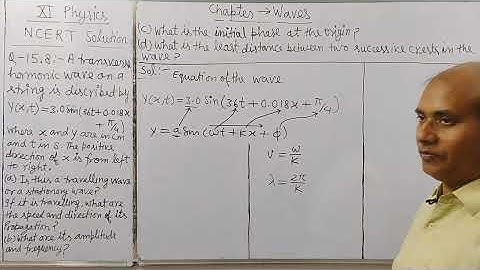 XI Physics
NCERT Solution
Q-15.8:- A transverse
harmonic wave on a
string is described by
Y(x,t)=3.0 Sin(36t+0.018x
+ π/4)
where x and y are in cm
and t in s. The positive
direction of x is from left
to right.
(a) Is this a travelling wave
or a stationary wave?
If it is travelling, what are
the speed and direction of its
Propagation?
(b) What are its amplitude
and frequency?
Chapter → Waves
(c) What is the initial phase at the origin?
(d) What is the least distance between two successive crests in the
wave?
Sol:- Equation of the wave
Y(x,t)=3.0 Sin(36t + 0.018x + π/4)
y = a Sin(ωt + Kx + ϕ)
v = ω/K
λ = 2π/K